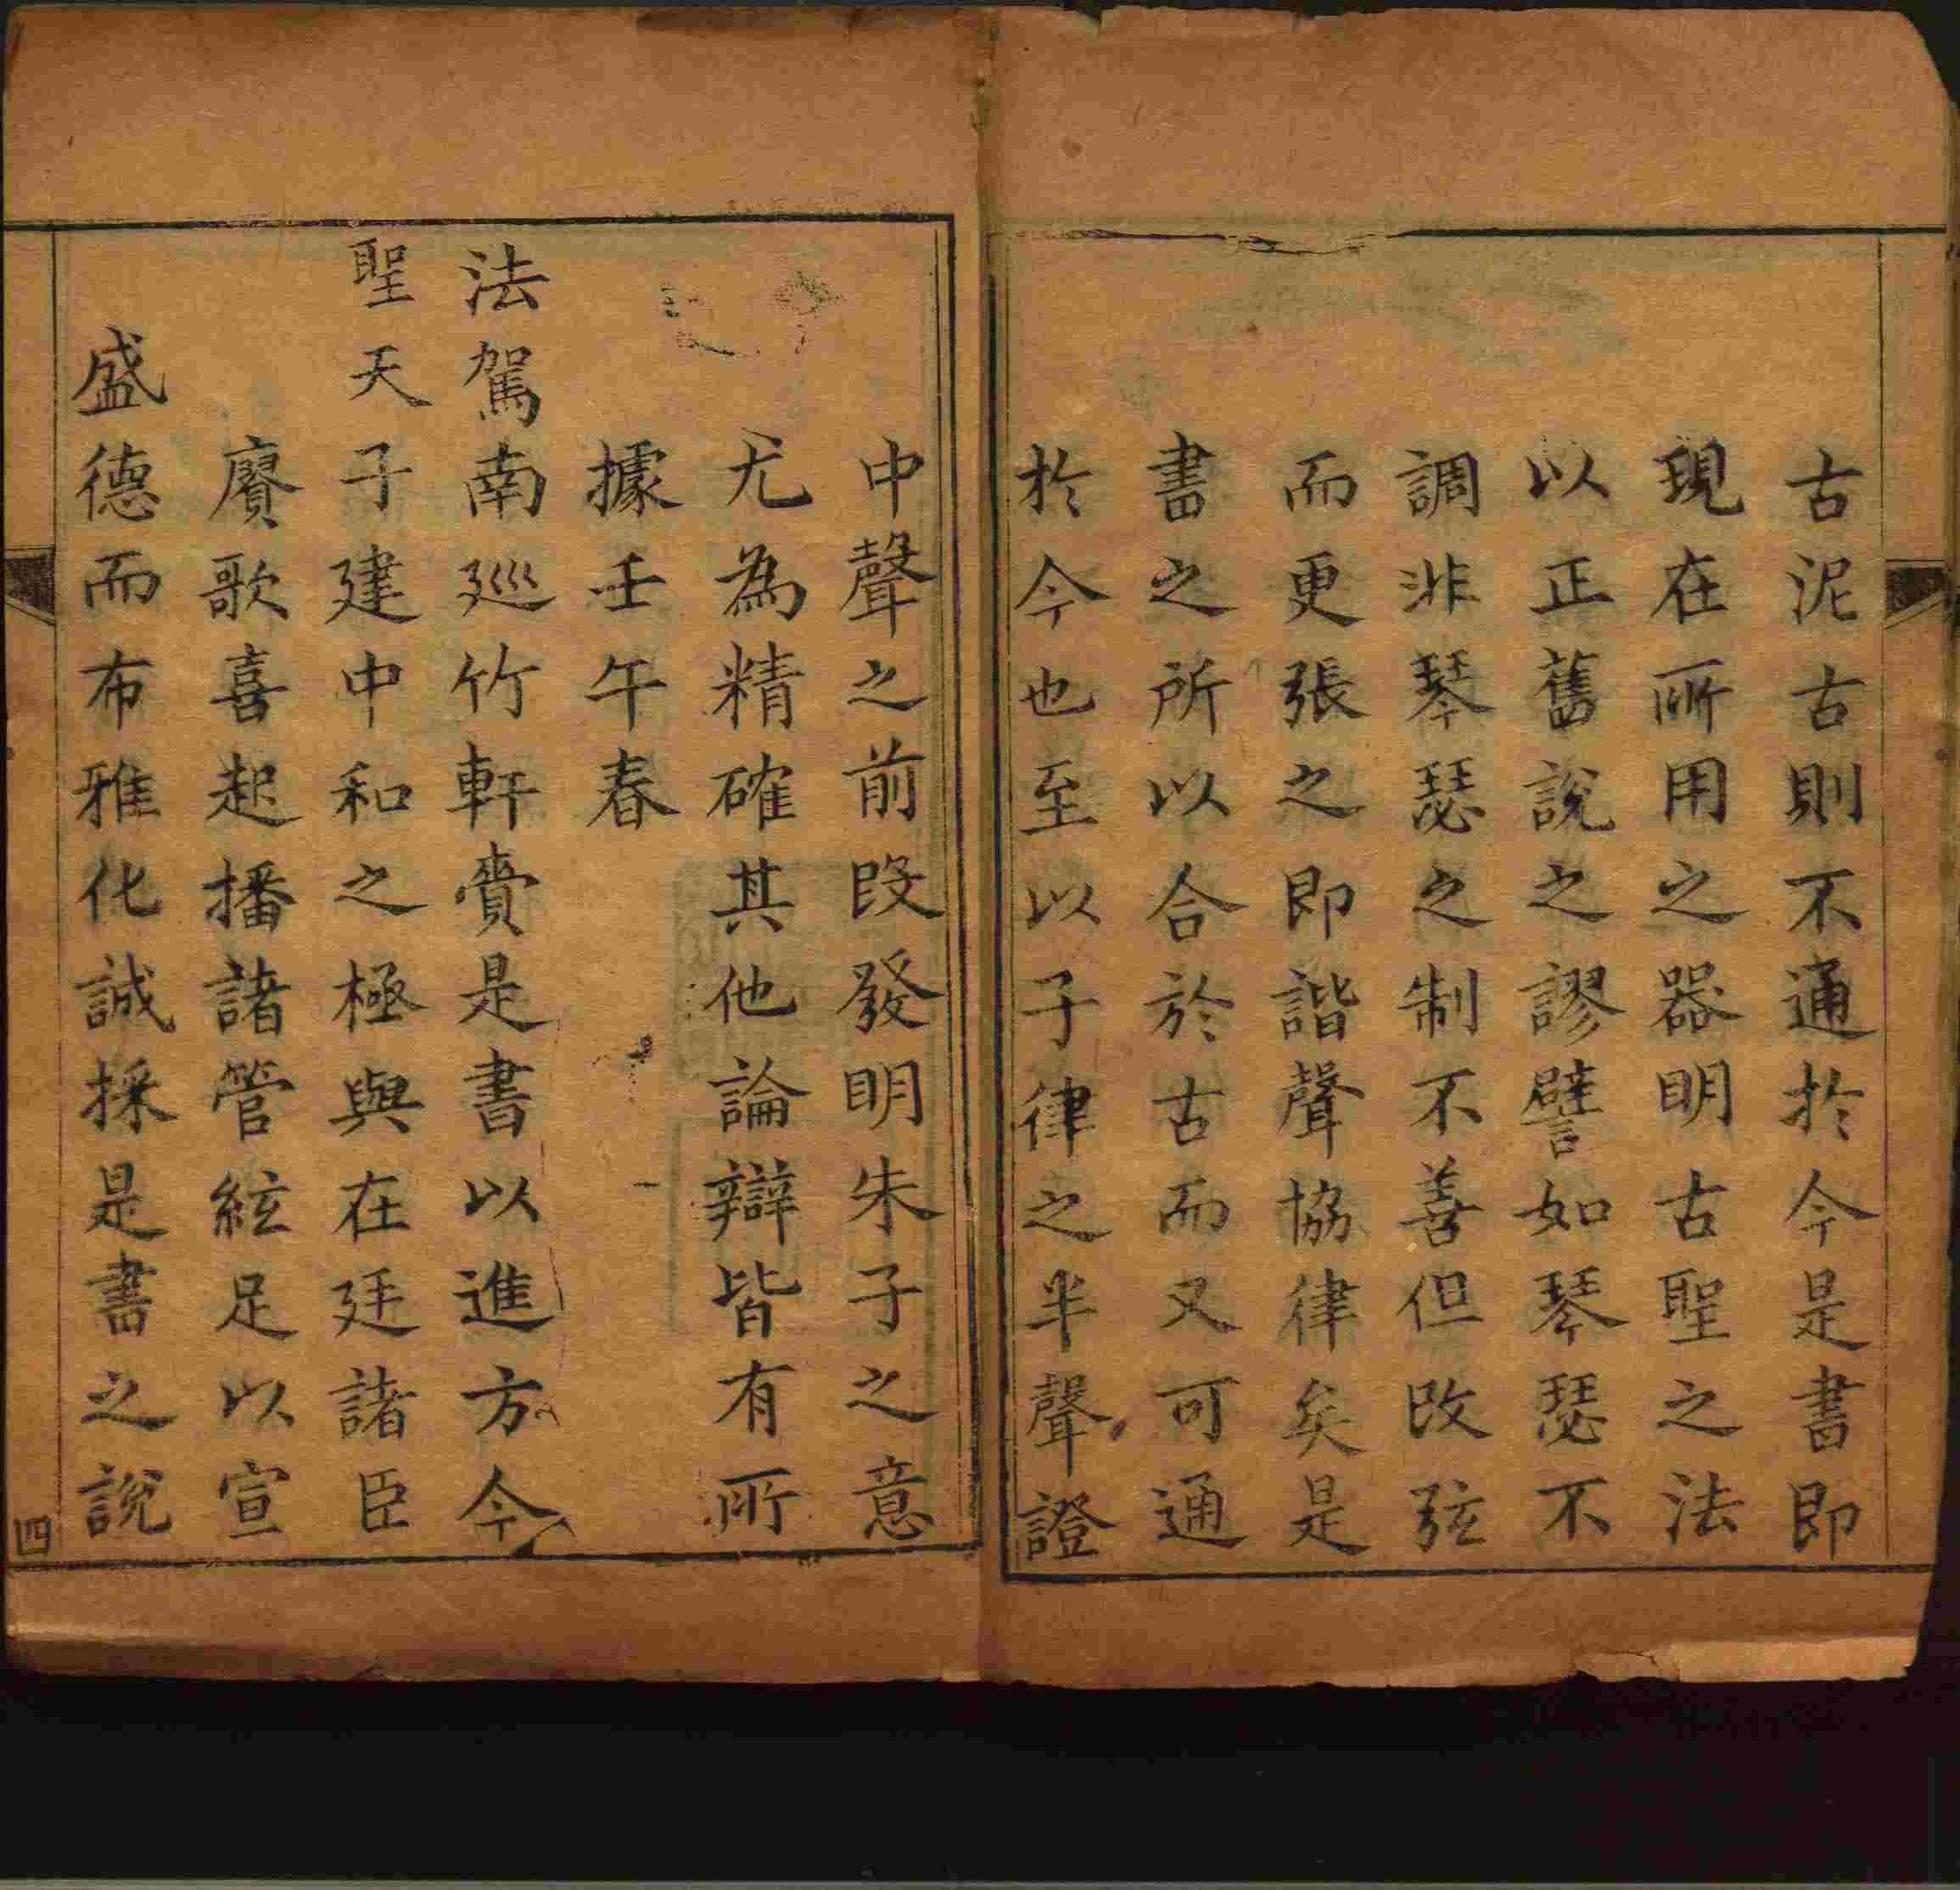 古泥古則不通於今是書即
現在所用之器明古聖之法
以正舊說之謬譬如琴瑟不
調非琴瑟之制不善但改弦
而更張之即諧聲協律矣是
書之所以合於古而又可通
於今也至以子律之半聲證
中聲之前段發明朱子之意
尤為精確其他論辯皆有所
據壬午春
法駕南廵竹軒賫是書以進方今
聖天子建中和之極與在廷諸臣
賡歌喜起播諸管絃足以宣
盛德而布雅化誠採是書之說
四